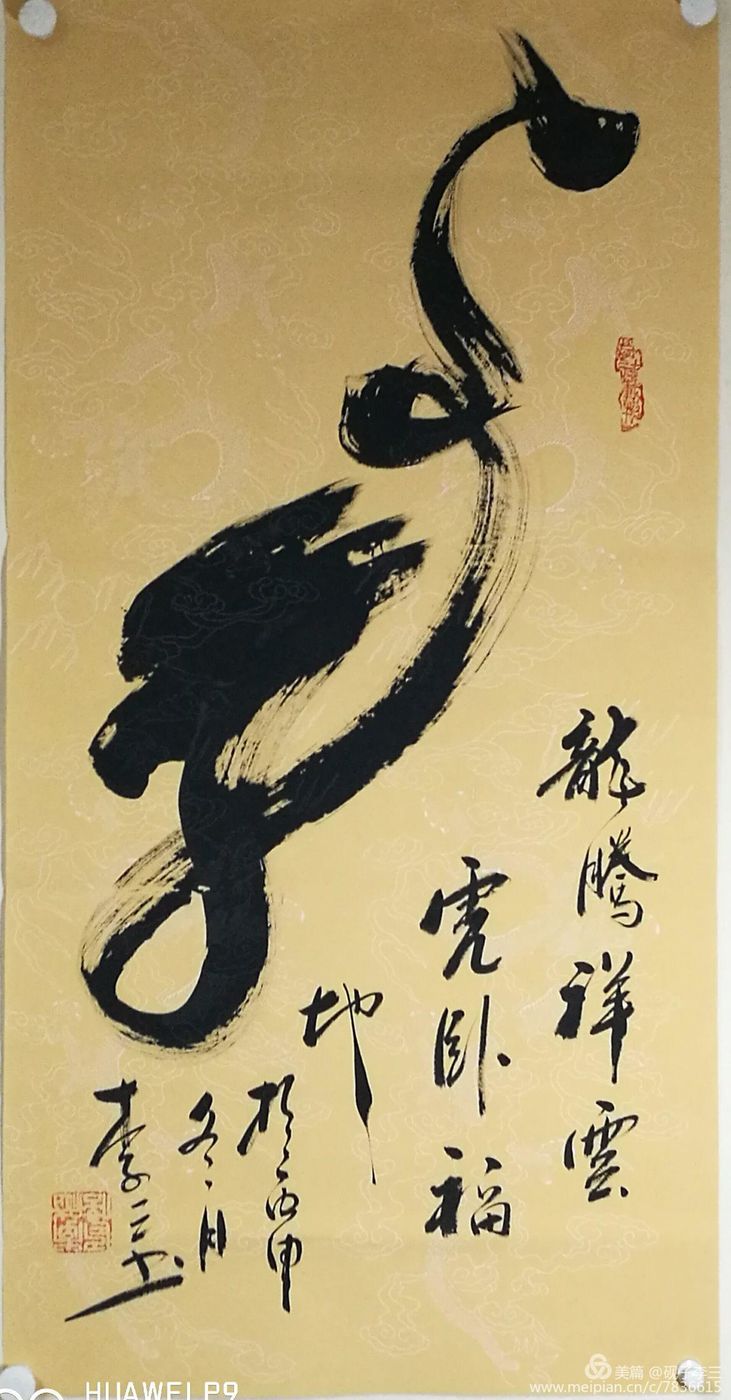 龍騰祥雲
虎卧福
地
於丙申
冬月
李三书
HUAWEI P9
美篇 @砚、李三
www.meipian.cn/c/7836615